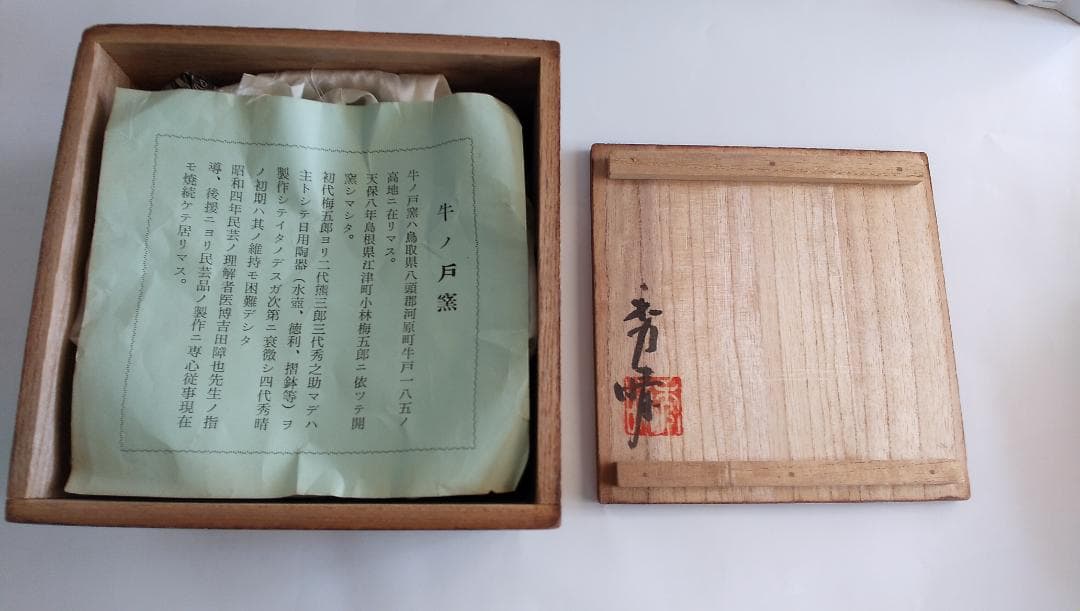 牛ノ戸窯
牛ノ戸窯ハ鳥取県八頭郡河原町牛戸一八五ノ
高地ニ在リマス。
天保八年島根県江津町小林梅五郎ニ依ツテ開
窯シマシタ。
初代梅五郎ヨリ二代熊三郎三代秀之助マデハ
主トシテ日用陶器(水壺、徳利、摺鉢等)ヲ
製作シテイタノデスガ次第ニ衰微シ四代秀晴
ノ初期ハ其ノ維持モ困難デシタ
昭和四年民芸ノ理解者医博吉田障也先生ノ指
導、後援ニヨリ民芸品ノ製作ニ専心従事現在
モ焼続ケテ居リマス。
秀晴